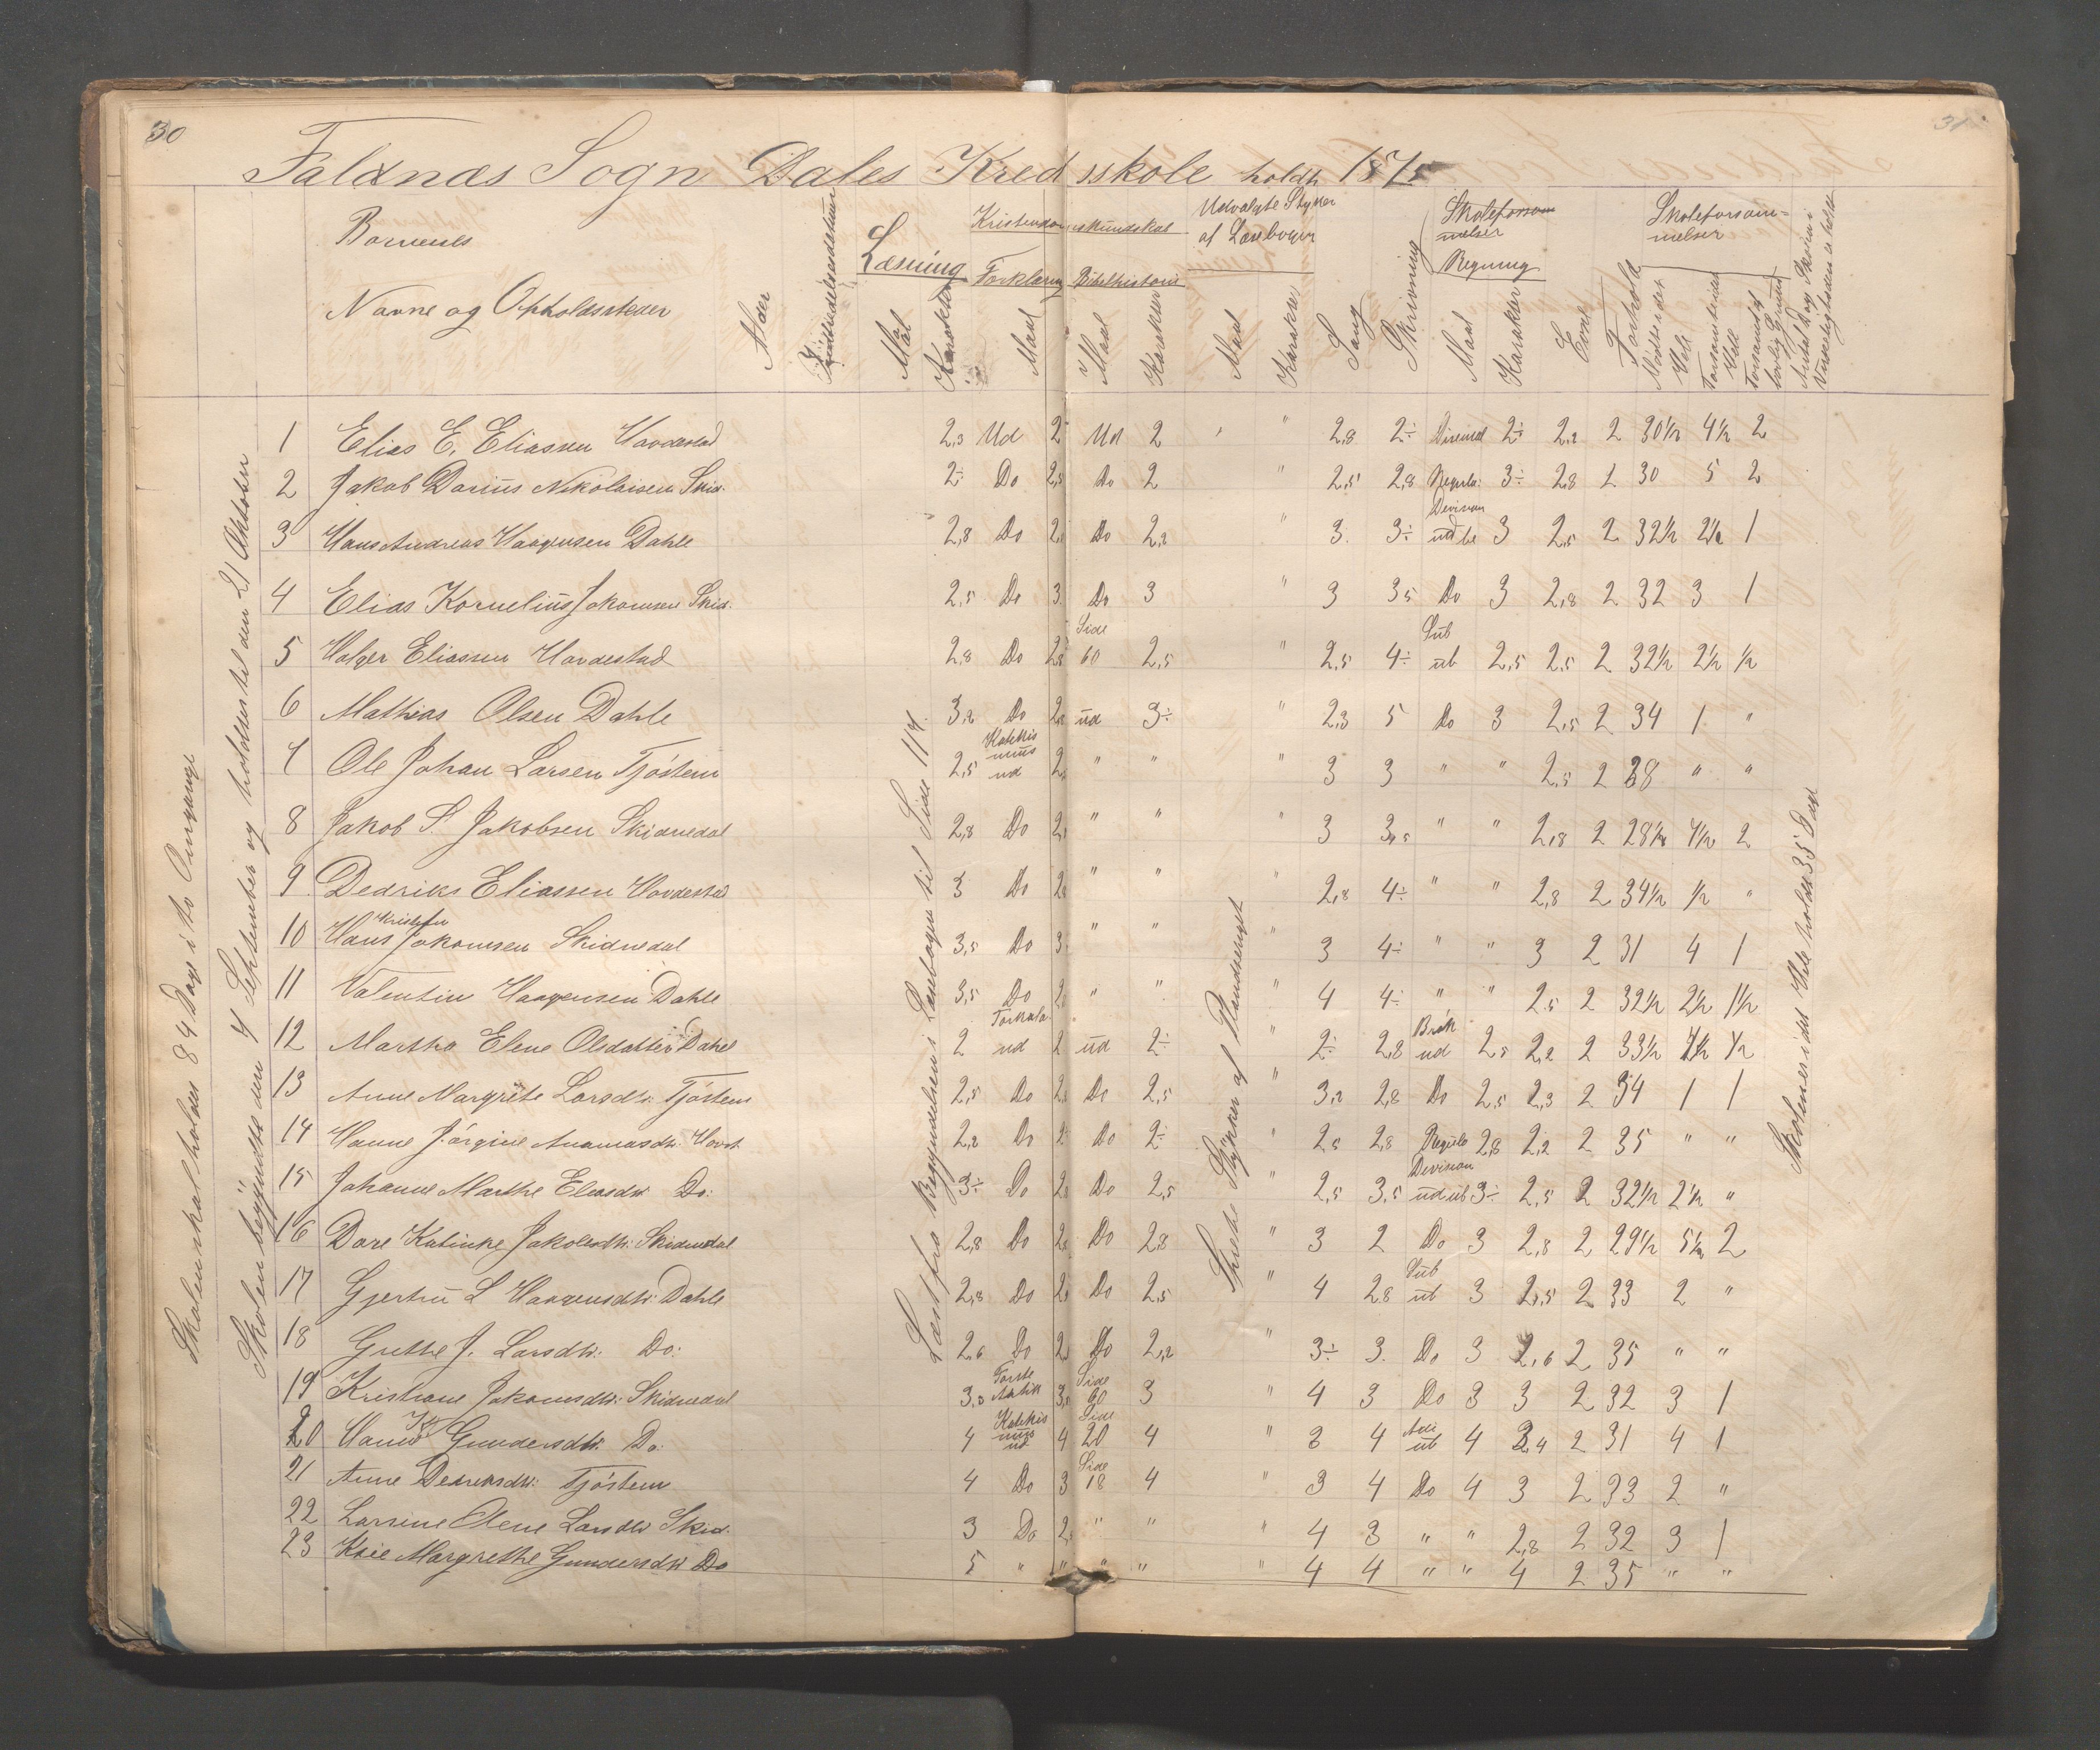 30
31
Faldnæs Sogn Dales Kredsskole holdt 1875
Børnenes
Navne og Opholdssteder
Alder
Læsning
Maal
Karakter
Kristendomskundskab
Forklaring
Maal
Bibelhistorie
Maal
Karakter
Udvalgte Stykker
af Læsebogen
Maal
Karakter
Sang
Skrivning
Skoleforsøm
melser
Regning
Maal
Karakter
Evne
Forhold
Skoleforsøm=
melser
Mødt
Hele
Forsømt
Hele
Antal Dage Skolen i
Virkeligheden er holdt
Skolen skal holdes 84 Dage i to Omgange
Skolen begyndte den 7 September og holdtes til den 21 Oktober
Læst fra Begyndelsen i Læsebogen til Side 114
Spredte Stykker af
Skolen er i det Hele holdt 35 Dage
1 Elias E. Eliassen Hovdestad 2,3 Ud 2 Ud 2 " " 2,8 2÷ 2÷ 2,2 2 30½ 4½ 2
2 Jakob Darius Nikolaisen Skid. 2÷ Do 2,5 Do 2 " 2,5 2,8 Regula 3÷ 2,8 2 30 5 2
3 Hans Andreas Haagensen Dahle 2,8 Do 2, Do 2,2 " 3 3÷ Devision 3 2,5 2 32½ 2½ 1
4 Elias Kornelius Jakomsen Skid. 2,5 Do 3 Do 3 " 3 3,5 Do 3 2,8 2 32 3 1
5 Holger Eliassen Hovdestad 2,8 Do 2,8 Side 60 2,5 " 2,5 4÷ Sub ub 2,5 2,5 2 32½ 2½ ½
6 Mathias Olsen Dahle 3,2 Do 2,8 ud 3÷ " 2,3 5 Do 3 2,5 2 34 1 "
7 Ole Johan Larsen Tjøstem 2,5 Katekismus ud 2, " " " 3 3 " " 2,5 2 28 " "
8 Jakob S. Jakobsen Skidnedal 2,8 Do 2, " " " 3 3,5 " " 2,8 2 28½ 7½ 2
9 Dedriks Eliassen Hovdestad 3 Do 2,8 " " " 2,8 4÷ " " 2,8 2 34½ ½ "
10 Hans Kristofer Jakomsen Skidnedal 3,5 Do 3 " " " 3 4÷ " " 3 2 31 4 1
11 Valentin Haagensen Dahle 3,5 Do 2, " " " 4 4÷ " " 2,5 2 32½ 2½ 1½
12 Martha Elene Olsdatter Dahle 2 Forklar ud 2 ud 2÷ " 2÷ 2,8 Brøk ud 2,5 2,2 2 33½ 1½ ½
13 Anne Margrete Larsdtr. Tjøstem 2,5 Do 2, Do 2,5 " 3,2 2,8 Do 2,5 2,3 2 34 1 1
14 Hanne Jørgine 2,2 Do 2 Do 2÷ " 2,5 2,8 Regula 2,8 2,2 2 35 " "
15 Johanne Marthe Eliasdtr Do: 3÷ Do 2,8 Do 2,5 " 2,5 3,5 Devision ud ub 3÷ 2,5 2 32½ 2½ "
16 Dore Katinke Jakobsdtr: Skidnedal 2,8 Do 2,8 Do 2,8 " 3 2 Do 3 2,8 2 29½ 5½ 2
17 Gjertru L Haagensdtr: Dahle 2,8 Do 2, Do 2,5 " 4 2,8 Sub ub 3 2,5 2 33 2 "
18 Grethe J. Larsdtr: Do: 2,6 Do 2, Do 2,2 " 3÷ 3 Do 3 2,6 2 35 " "
19 Kristiane Jakomsdtr: Skidnedal 3,5 Første Artik 3, Side 60 3 " 4 3 Do 3 3 2 32 3 1
20 Hanne Gundersdtr. Do: 4 Katekismus ud 4 Side 20 4 " 3 4 Adi ub 4 3,4 2 31 4 1
21 Anne Dedriksdtr: Tjøstem 4 Do 3 Side 18 4 " 3 4 Do 4 3 2 33 2 "
22 Larsine Olene Larsdtr Skid. 3 Do 2, " " " 4 3 " " 2,8 2 32 3 1
23 Margrethe Gundersdtr Do 5 " " " " " 4 4 " " 4 2 35 " "